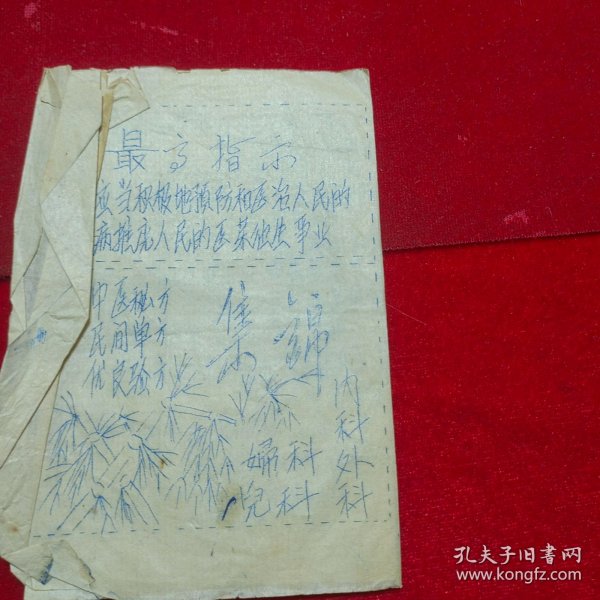 最高指示
应当积极地预防和医治人民的
病推广人民的医药卫生事业
中医秘方
民间单方
优良验方
集锦
内科
外科
婦科
兒科
孔夫子旧书网
www.kongfz.com